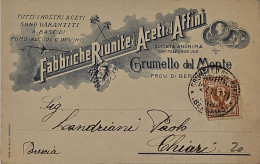 TUTTI I NOSTRI ACETI
SONO GARANTITI
A BASE DI
PURO ALCOOL E DI VINO
Fabbriche Riunite Aceti ed Affini
SOCIETÀ ANONIMA
Grumello del Monte
PROV. DI BERGAMO
Sig
Landriani Paolo
Chiari
Brescia